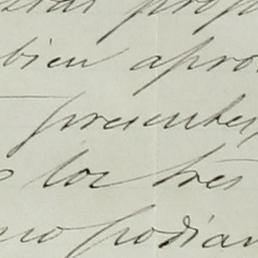 bien apro
presentes,
los tres
no podian